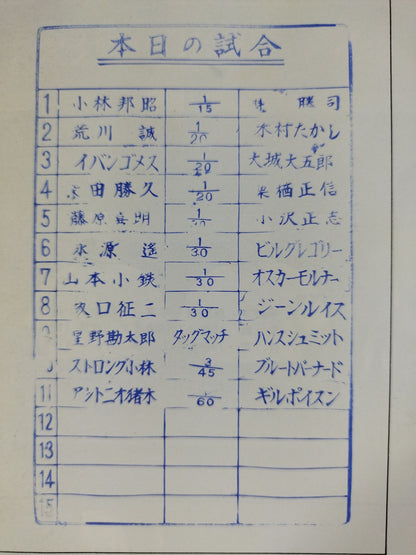 本日の試合
1 小林邦昭 1/15 勝司
2 荒川 誠 1/20 木村たかし
3 イバンゴメス 1/20 大城大五郎
4 田勝久 1/20 栗栖正信
5 藤原喜明 小沢正志
6 永源 遙 1/30 ビルグレゴリー
7 山本小鉄 1/30 オスカーモルナー
8 坂口征二 1/30 ジーンルイス
星野勘太郎 タッグマッチ ハンスシュミット
ストロング小林 3/45 ブルートバーナード
11 アントニオ猪木 /60 ギルポイスン
12
13
14
15